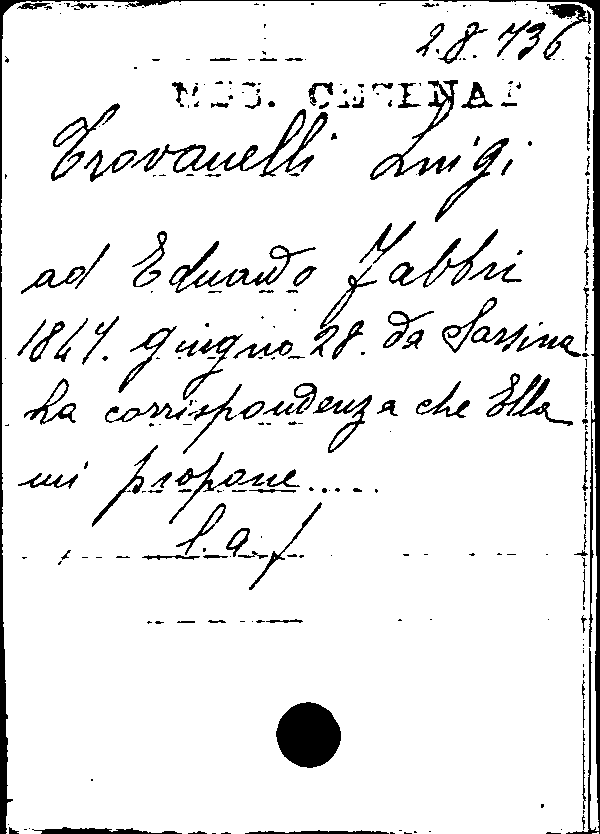 2.8.736
MSS. CESENATI
Trovanelli Luigi
ad Eduardo Fabbri
1847. giugno 28. da Sarsina
La corrispondenza che Ella
mi propone.....
l.a.f